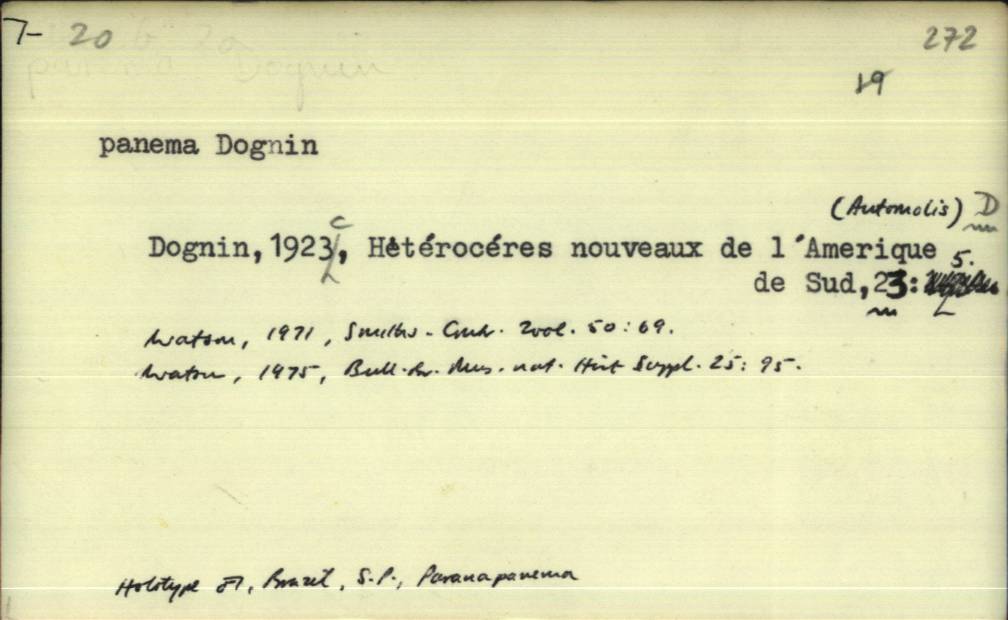 7- 20
272
19
panema Dognin
(Automolis) D
Dognin, 1923c, Hétérocéres nouveaux de l'Amerique
de Sud, 23: 5.
Watson, 1971, Smiths. Contr. Zool. 50:69.
Watson, 1975, Bull. Br. Mus. nat. Hist Suppl. 25: 95.
Holotype ♂, Brazil, S.P., Paranapanema